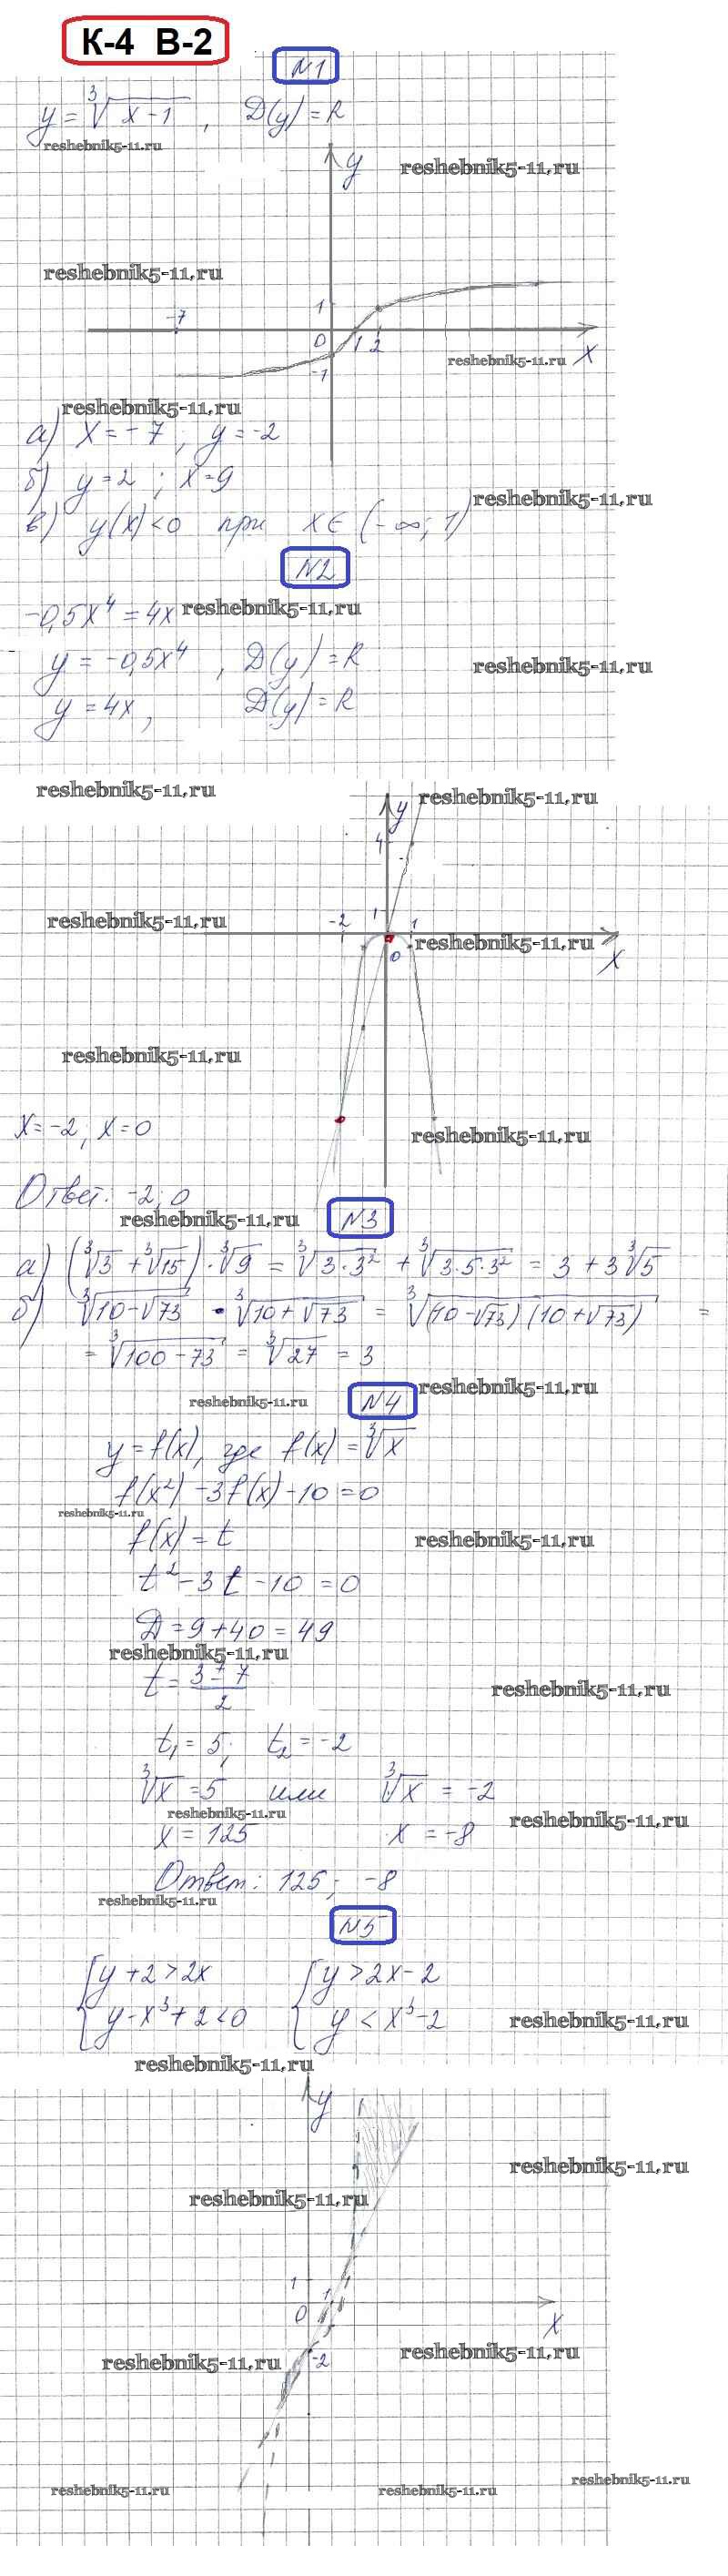 К-4 В-2
N1
y = ∛(x-1) , D(y) = R
reshebnik5-11.ru
y
reshebnik5-11.ru
reshebnik5-11.ru
-7 1 0 1 2 -1 x
reshebnik5-11.ru
reshebnik5-11.ru
а) x = -7 ; y = -2
б) y = 2 ; x = 9
reshebnik5-11.ru
в) y(x) < 0 при x ∈ (-∞; 1)
N2
-0,5x⁴ = 4x
reshebnik5-11.ru
y = -0,5x⁴ , D(y) = R
reshebnik5-11.ru
y = 4x , D(y) = R
reshebnik5-11.ru
reshebnik5-11.ru
y
4
reshebnik5-11.ru
-2 1 1
reshebnik5-11.ru
0 x
reshebnik5-11.ru
x = -2 ; x = 0
reshebnik5-11.ru
Ответ: -2; 0
reshebnik5-11.ru
N3
а) (∛3 + ∛15) · ∛9 = ∛(3·3²) + ∛(3·5·3²) = 3 + 3∛5
б) ∛(10-√73) · ∛(10+√73) = ∛((10-√73)(10+√73)) =
= ∛(100-73) = ∛27 = 3
reshebnik5-11.ru
reshebnik5-11.ru
N4
y = f(x), где f(x) = ∛x
f(x²) - 3f(x) - 10 = 0
reshebnik5-11.ru
f(x) = t
reshebnik5-11.ru
t² - 3t - 10 = 0
D = 9 + 40 = 49
reshebnik5-11.ru
t = (3 ± 7)/2
reshebnik5-11.ru
t₁ = 5; t₂ = -2
∛x = 5 или ∛x = -2
reshebnik5-11.ru
reshebnik5-11.ru
x = 125 x = -8
Ответ: 125; -8
reshebnik5-11.ru
N5
{ y + 2 > 2x { y > 2x - 2
{ y - x³ + 2 < 0 { y < x³ - 2
reshebnik5-11.ru
reshebnik5-11.ru
y
reshebnik5-11.ru
reshebnik5-11.ru
1
0 1 x
reshebnik5-11.ru
-2
reshebnik5-11.ru
reshebnik5-11.ru
reshebnik5-11.ru
reshebnik5-11.ru